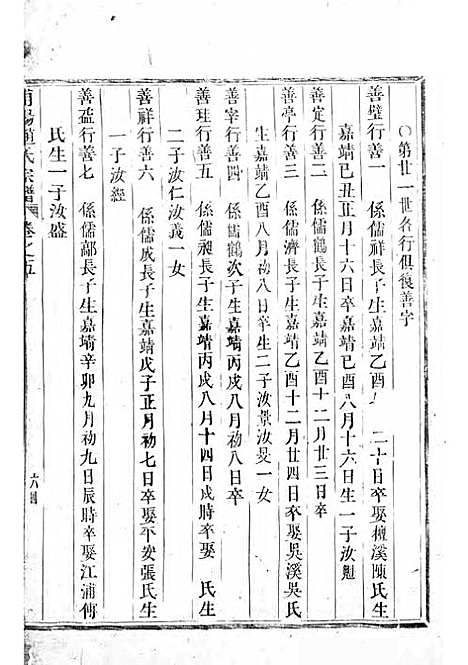 ○第廿一世各行俱復善字
善璧行善一　係儒祥長子生嘉靖乙酉　二十日卒娶檀溪陳氏生
嘉靖己丑正月十六日卒嘉靖己酉八月十六日生一子汝魁
善定行善二　係儒鶴長子生嘉靖乙酉十二月廿三日卒
善亭行善三　係儒濟長子生嘉靖乙酉十二月廿四日卒娶吳溪吳氏
生嘉靖乙酉八月初八日卒生二子汝景汝旻一女
善宰行善四　係儒鶴次子生嘉靖丙戌八月初八日卒
善珪行善五　係儒昶長子生嘉靖丙戌八月十四日戌時卒娶　氏生
二子汝仁汝義一女
善祥行善六　係儒成長子生嘉靖戊子正月初七日卒娶平安張氏生
一子汝經
善孟行善七　係儒鄗長子生嘉靖辛卯九月初九日辰時卒娶江浦傅
氏生一子汝盛
浦陽趙氏宗譜　卷之五　六四